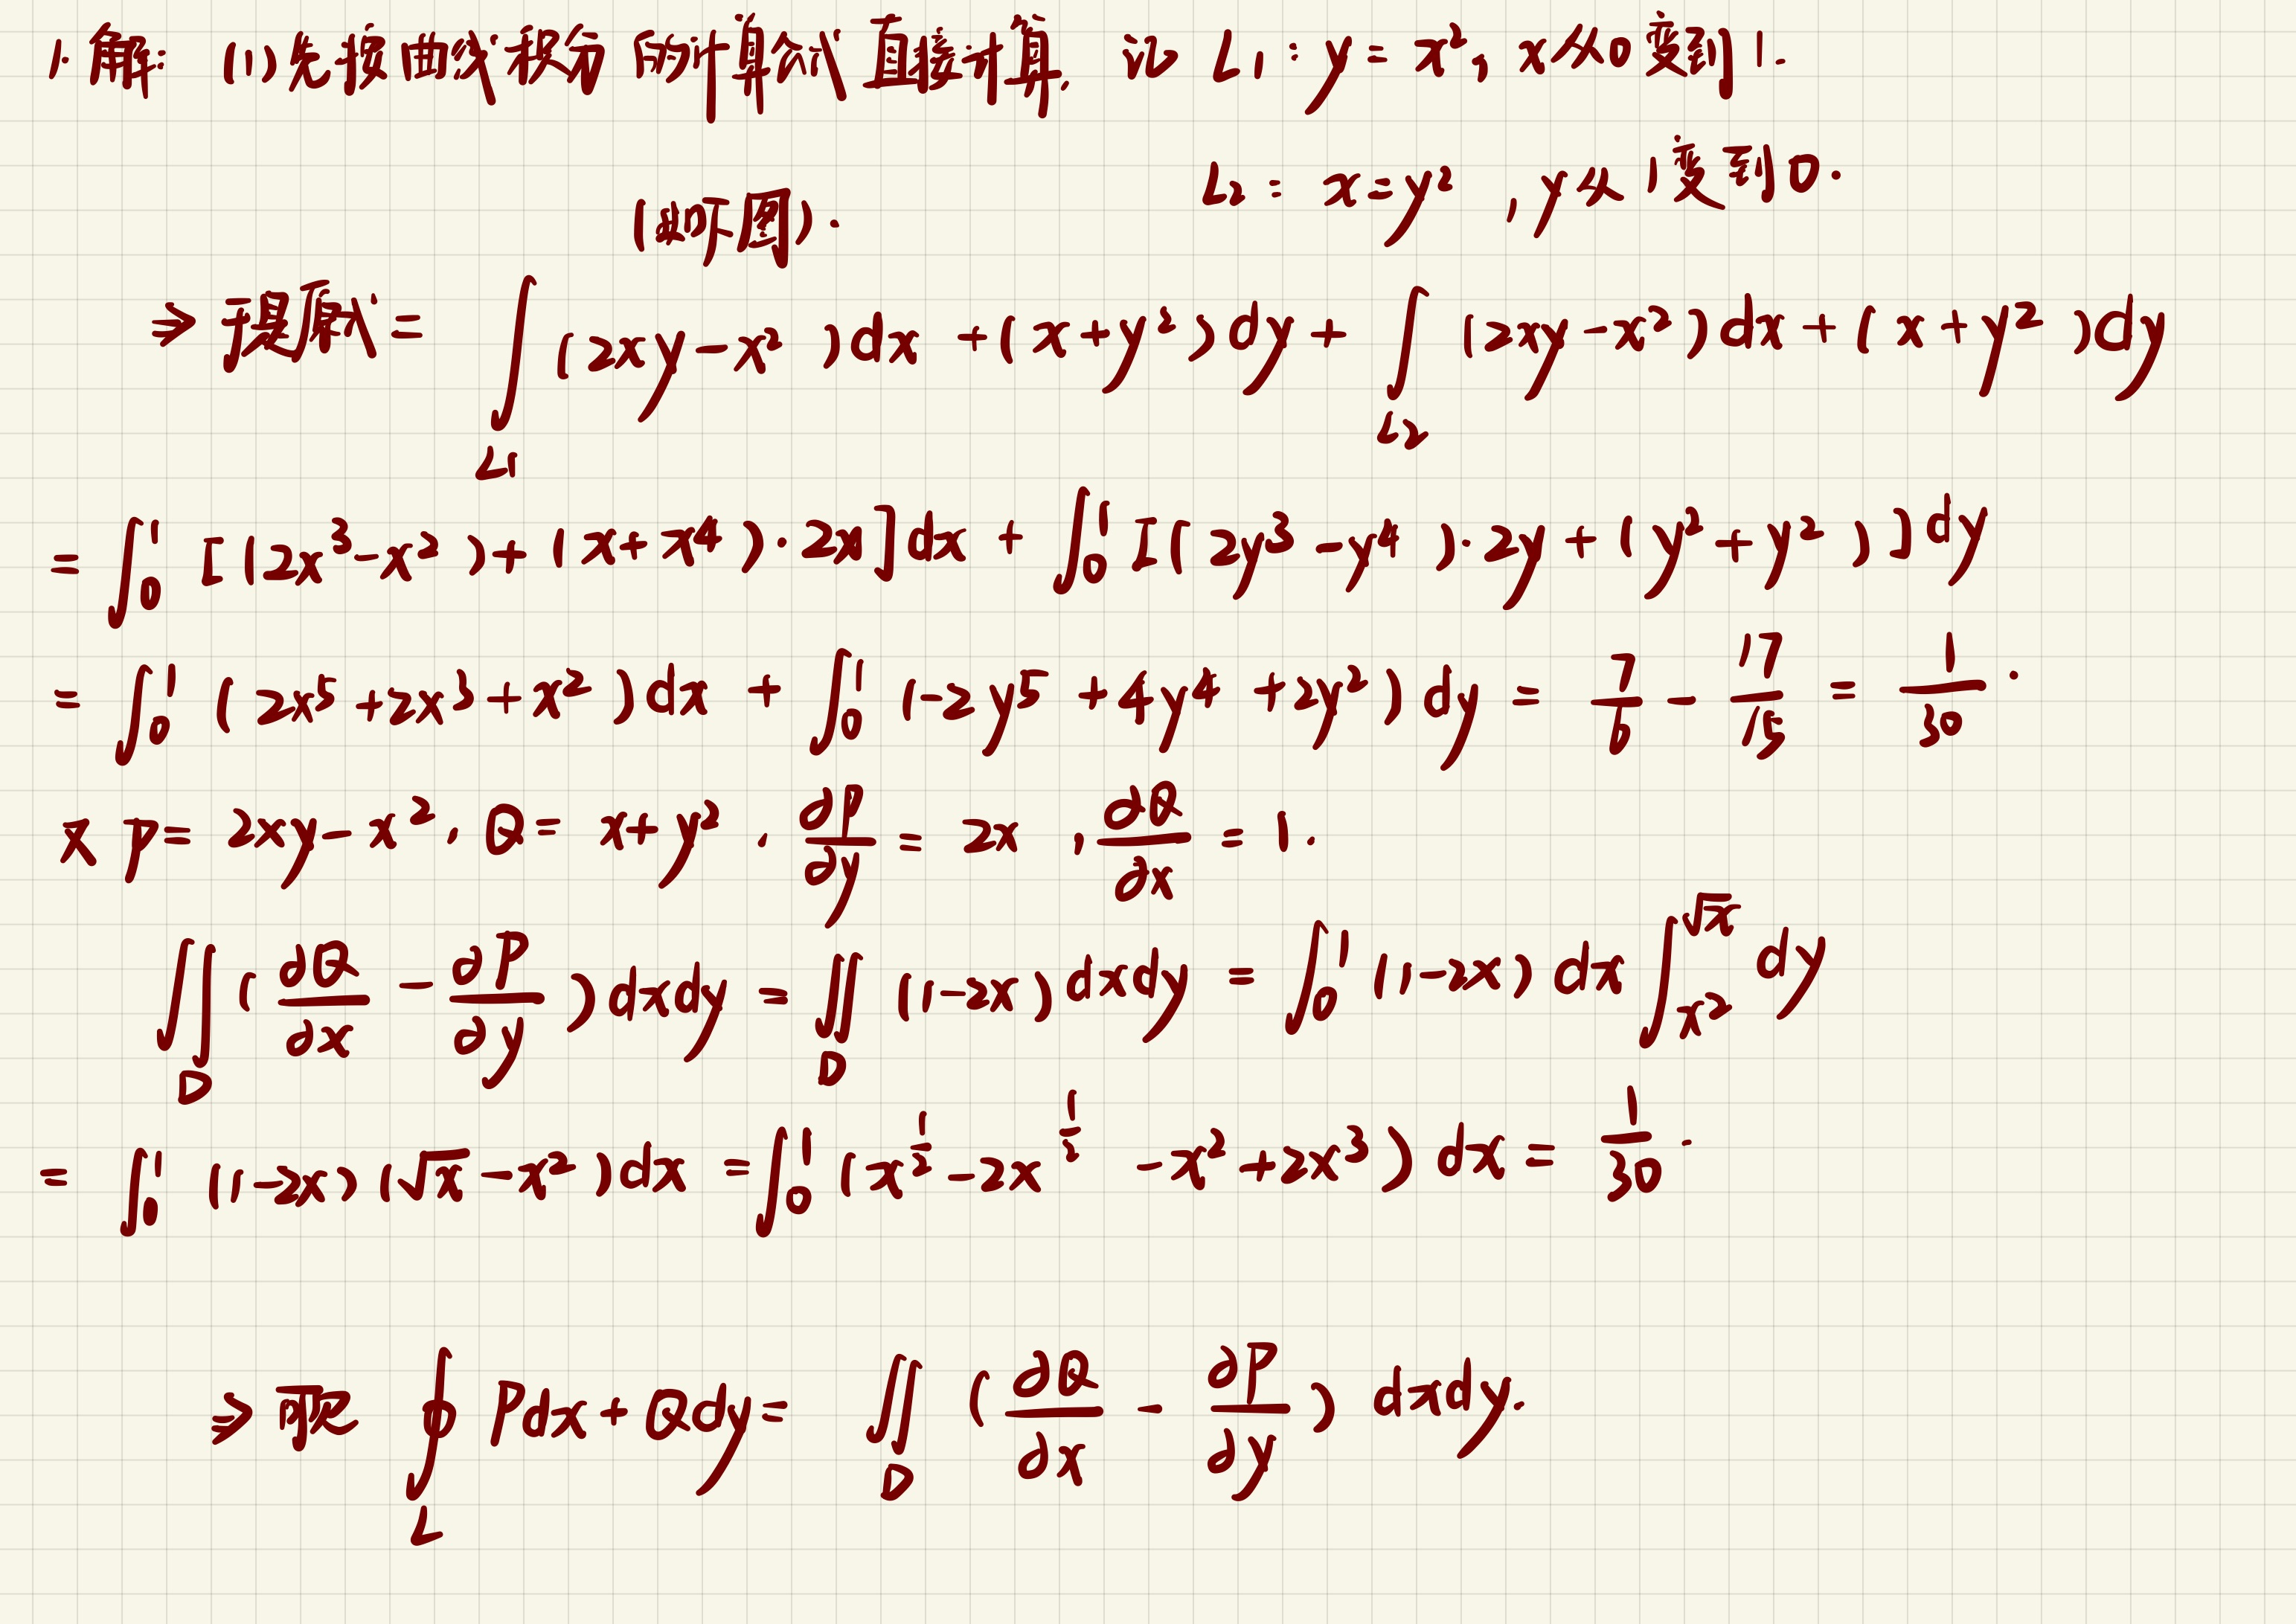 1.解: (1) 先按曲线积分的计算公式直接计算. 记 L₁: y = x², x从0变到1.
L₂: x=y², y从1变到0.
(如下图).
⇒ 原式 = ∫_{L₁} (2xy-x²)dx+(x+y²)dy+ ∫_{L₂} (2xy-x²)dx+(x+y²)dy
= ∫₀¹ [(2x³-x²)+(x+x⁴)·2x]dx + ∫₀¹ [(2y³-y⁴)·2y+(y²+y²)]dy
= ∫₀¹ (2x⁵+2x³+x²)dx + ∫₀¹ (-2y⁵+4y⁴+2y²)dy = 7/6 - 17/15 = 1/30.
又 P= 2xy-x², Q= x+y², ∂P/∂y = 2x, ∂Q/∂x = 1.
∬_D (∂Q/∂x - ∂P/∂y)dxdy = ∬_D (1-2x)dxdy = ∫₀¹ (1-2x)dx ∫_{x²}^{√x} dy
= ∫₀¹ (1-2x)(√x-x²)dx = ∫₀¹ (x^{1/2}-2x^{1/2}-x²+2x³)dx = 1/30.
⇒ 可见 ∮_L Pdx+Qdy= ∬_D (∂Q/∂x - ∂P/∂y) dxdy.